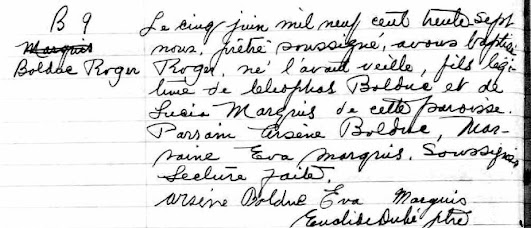 B 9
Marquis
Bolduc Roger
Le cinq juin mil neuf cent trente sept
nous, prêtre soussigné, avons baptisé
Roger, né l'avant veille, fils légi-
time de Cléophas Bolduc et de
Lucia Marquis de cette paroisse.
Parrain Arsène Bolduc, Mar-
raine Eva Marquis. Soussignés
Lecture faite.
Arsène Bolduc Eva Marquis
Euclide Dubé ptre